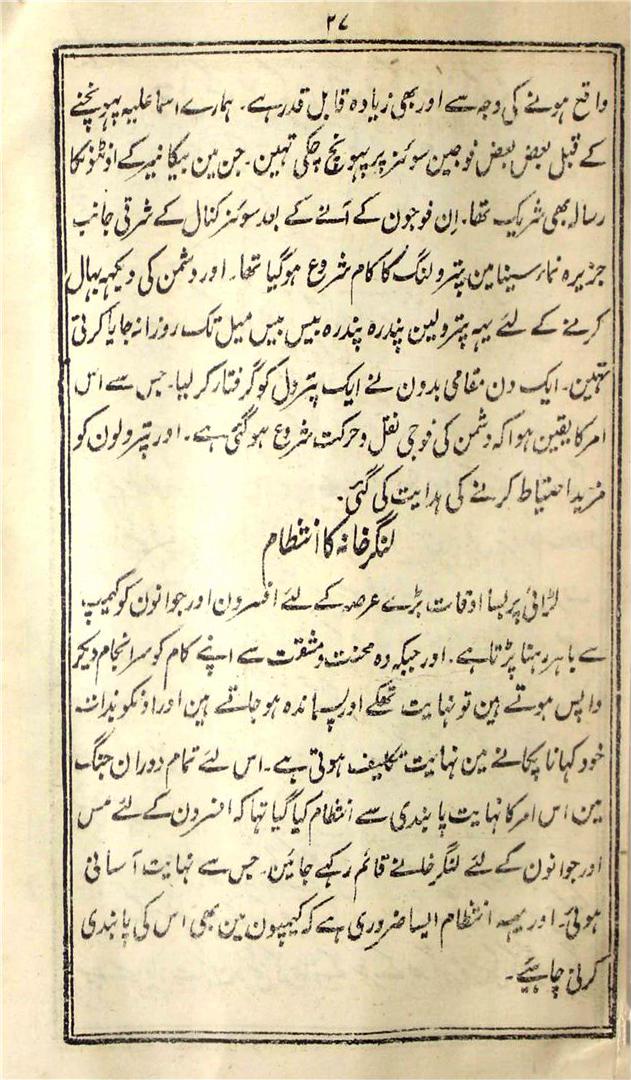 ۳۷
واقع ہونے کی وجہ سے اور بھی زیادہ قابل قدر ہے۔ ہمارے اسماعلیہ پہونچنے
کے قبل بعض بعض فوجین سوئنز پر پہونچ چکی تہین۔ جن مین بیکانیر کے اونٹونکا
رسالہ بھی شریک تھا۔ اِن فوجون کے آنے کے بعد سوئنز کنال کے شرقی جانب
جزیرہ نماء سینا مین پترولنگ کا کام شروع ہوگیا تھا۔ اور دشمن کی دیکہہ بہال
کرنے کے لئے یہہ پترولین پندرہ پندرہ بیس بیس میل تک روزانہ جایا کرتی
تہین۔ ایک دن مقامی بدون نے ایک پترول کو گرفتار کر لیا۔ جس سے اس
امر کا یقین ہوا کہ دشمن کی فوجی نقل و حرکت شروع ہوگئی ہے۔ اور پترولون کو
مزید احتیاط کرنے کی ہدایت کی گئی۔
لنگر خانہ کا انتظام
لڑائی پر بسا اوقات بڑے عرصہ کے لئے افسرون اور جوانون کو کیمپ
سے باہر رہنا پڑتا ہے۔ اور جبکہ وہ محنت و مشقت سے اپنے کام کو سرانجام دیکر
واپس ہوتے ہین تو نہایت تھکے اور پسماندہ ہو جاتے ہین اور اونکو بذات
خود کہانا پکانے مین نہایت تکلیف ہوتی ہے۔ اس لئے تمام دوران جنگ
مین اس امر کا نہایت پابندی سے انتظام کیا گیا تہا کہ افسرون کے لئے مس
اور جوانون کے لئے لنگر خانے قائم رکہے جائین۔ جس سے نہایت آسانی
ہوئی۔ اور یہہ انتظام ایسا ضروری ہے کہ کیمپون مین بھی اس کی پابندی
کرنی چاہیے۔